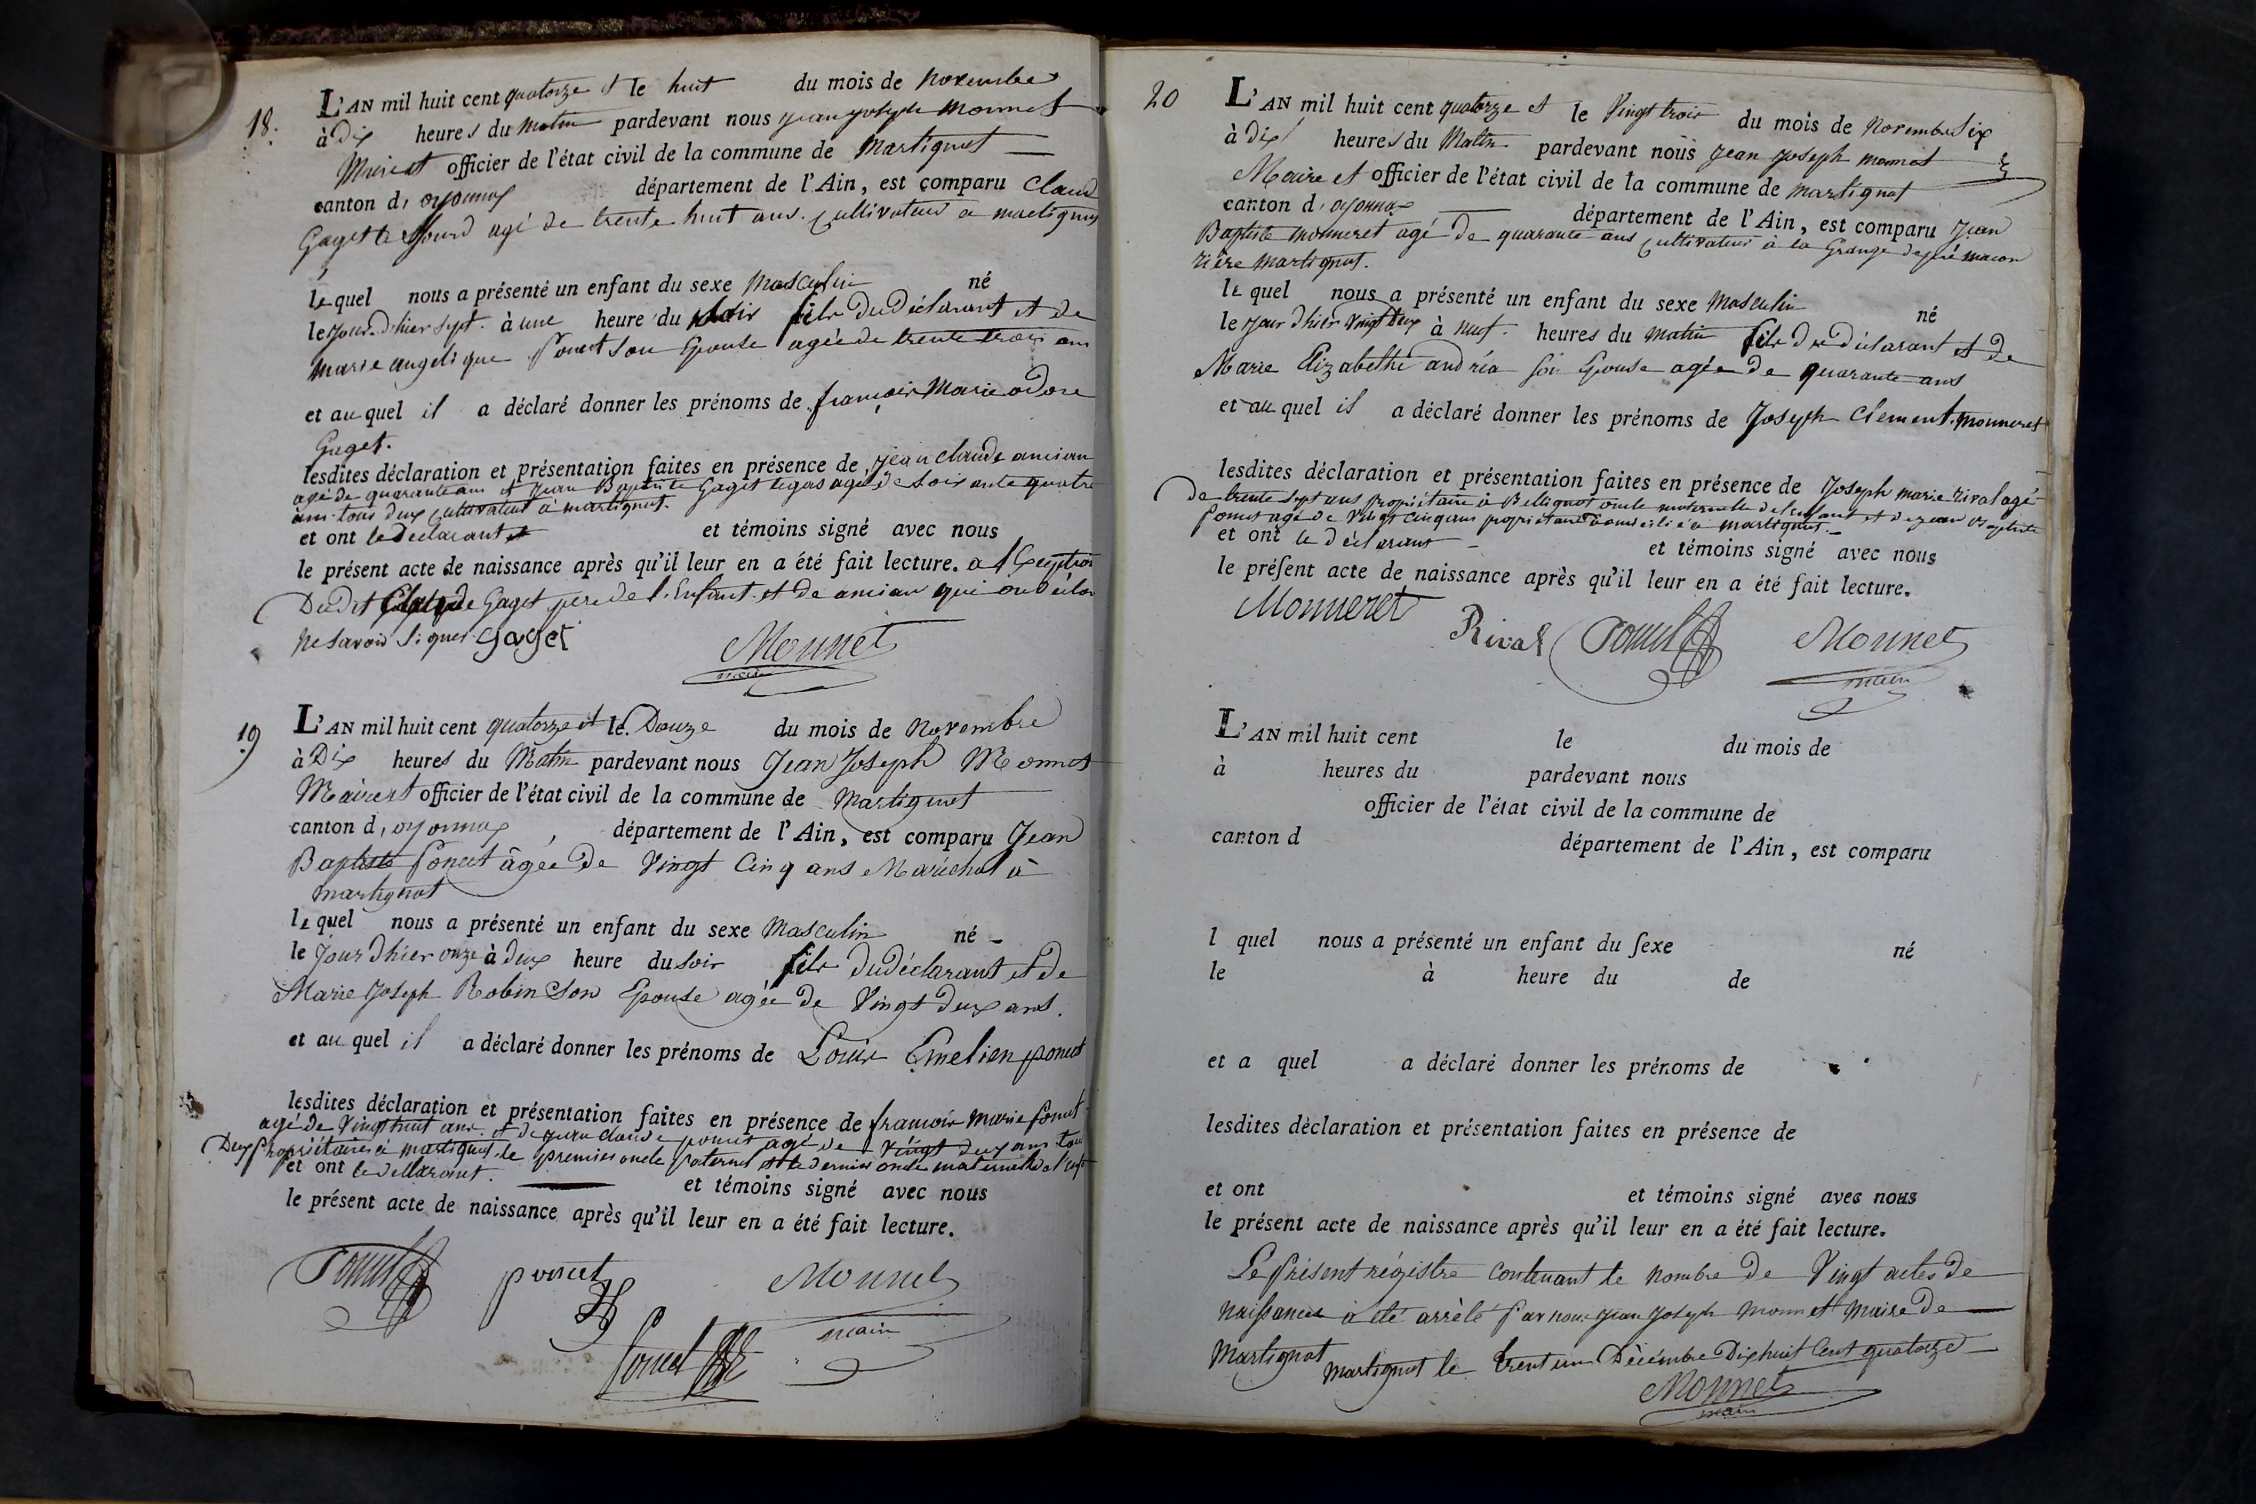 18.
L'AN mil huit cent quatorze et le huit du mois de Novembre
à Dix heures du matin pardevant nous jean joseph monnet
Maire et officier de l'état civil de la commune de Martignat
canton d'oyonnax département de l'Ain, est comparu Claude
Gaget le Sourd agé de trente huit ans cultivateur a martignat
lequel nous a présenté un enfant du sexe Masculin né
le jour d'hier sept à une heure du soir fils du Déclarant et de
marie angelique Poncet son Epouse agée de trente trois ans
et auquel il a déclaré donner les prénoms de françois Marie
Gaget.
lesdites déclaration et présentation faites en présence de jean claude ancian
agé de quarante ans et jean Baptiste Gaget agé de Soixante quatre
ans tous deux cultivateur à martignat.
et ont le declarant et et témoins signé avec nous
le présent acte de naissance après qu'il leur en a été fait lecture. a l'Exception
Dudit Claude Gaget pere de l'Enfant et de ancian qui ont déclaré
ne savoir signer Gaget
Monnet
maire
19
L'AN mil huit cent quatorze et le Douze du mois de Novembre
à Dix heures du Matin pardevant nous Jean Joseph Monnet
Maire et officier de l'état civil de la commune de Martignat
canton d'oyonnax, département de l'Ain, est comparu Jean
Baptiste Poncet âgée De Vingt Cinq ans Maréchal à
martignat
lequel nous a présenté un enfant du sexe Masculin né
le Jour d'hier onze à deux heure du soir fils du déclarant et de
Marie Joseph Robin Son Epouse agée de Vingt deux ans.
et au quel il a déclaré donner les prénoms de Louis Emelien poncet
lesdites déclaration et présentation faites en présence de francois Marie Poncet
agé de Vingt huit ans et de jean claude poncet agé de Vingt deux ans tous
Deux Propriétaires à martignat le premier oncle paternel et le dernier oncle maternel de l'enft
et ont le déclarant. et témoins signé avec nous
le présent acte de naissance après qu'il leur en a été fait lecture.
Poncet poncet Monnet
maire
Poncet
20
L'AN mil huit cent quatorze et le Vingt trois du mois de Novembre
à Dix heures du Matin pardevant nous Jean Joseph monnet
Maire et officier de l'état civil de la commune de Martignat
canton d'oyonnax département de l'Ain, est comparu Jean
Baptiste Monneret agé de quarante ans cultivateur à la Grange
rière martignat.
le quel nous a présenté un enfant du sexe Masculin né
le jour d'hier vingt deux à neuf heures du matin fils du déclarant et de
Marie Elizabethe andréa son Epouse agée de quarante ans
et au quel il a déclaré donner les prénoms de Joseph Clément monneret
lesdites déclaration et présentation faites en présence de Joseph marie rival agé
de trente sept ans propriétaire à Bellignat oncle maternelle de l'enfant et de jean Baptiste
Poncet agé de vingt cinq ans propriétaire domicilié à martignat.
et ont le déclarant et témoins signé avec nous
le présent acte de naissance après qu'il leur en a été fait lecture.
Monneret
Rival Poncet Monnet
maire
L'AN mil huit cent le du mois de
à heures du pardevant nous
officier de l'état civil de la commune de
canton d département de l'Ain, est comparu
l quel nous a présenté un enfant du sexe né
le à heure du de
et a quel a déclaré donner les prénoms de
lesdites déclaration et présentation faites en présence de
et ont et témoins signé avec nous
le présent acte de naissance après qu'il leur en a été fait lecture.
Le Présent régistre contenant le nombre de Vingt actes de
naissances a été arrêté Par nous jean joseph monnet maire de
Martignat
Martignat le trent un Décembre Dix huit Cent quatorze
Monnet
maire